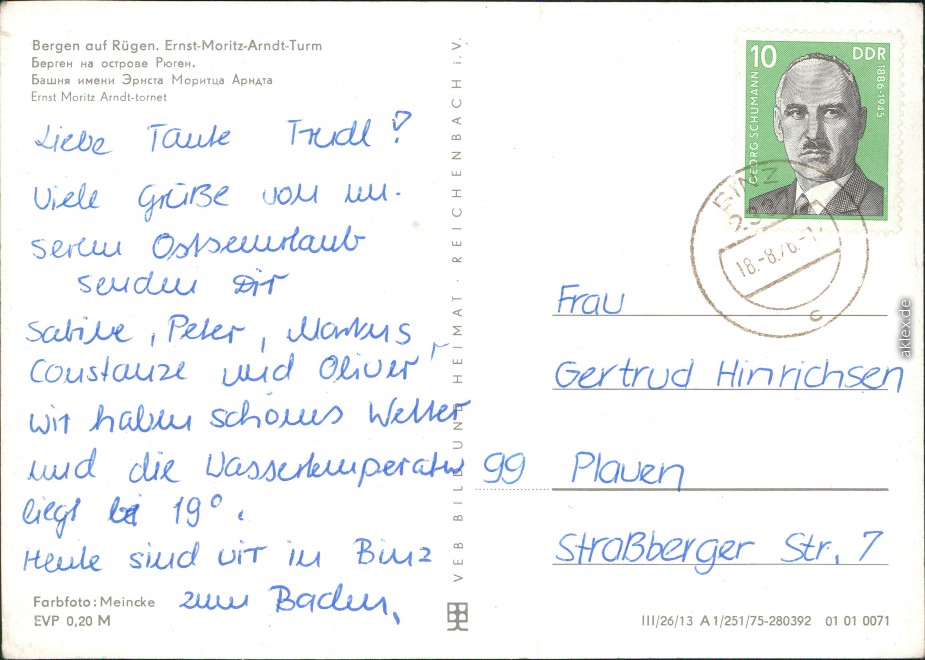 Bergen auf Rügen. Ernst-Moritz-Arndt-Turm
Берген на острове Рюген.
Башня имени Эрнста Моритца Арндта
Ernst Moritz Arndt-tornet
Liebe Tante Trudl!
Viele Grüße von un-
serem Ostseeurlaub
senden Dir
Sabine, Peter, Markus,
Constanze und Oliver!
Wir haben schönes Wetter
und die Wassertemperatur
liegt bei 19°.
Heute sind wir in Binz
zum Baden.
Farbfoto: Meincke
EVP 0,20 M
VEB BILD UND HEIMAT · REICHENBACH i. V.
10 DDR
GEORG SCHUMANN
1886-1945
BINZ
18.-8.76.-1
c
Frau
Gertrud Hinrichsen
99 Plauen
Straßberger Str. 7
III/26/13 A 1/251/75-280392 01 01 0071
aklex.de